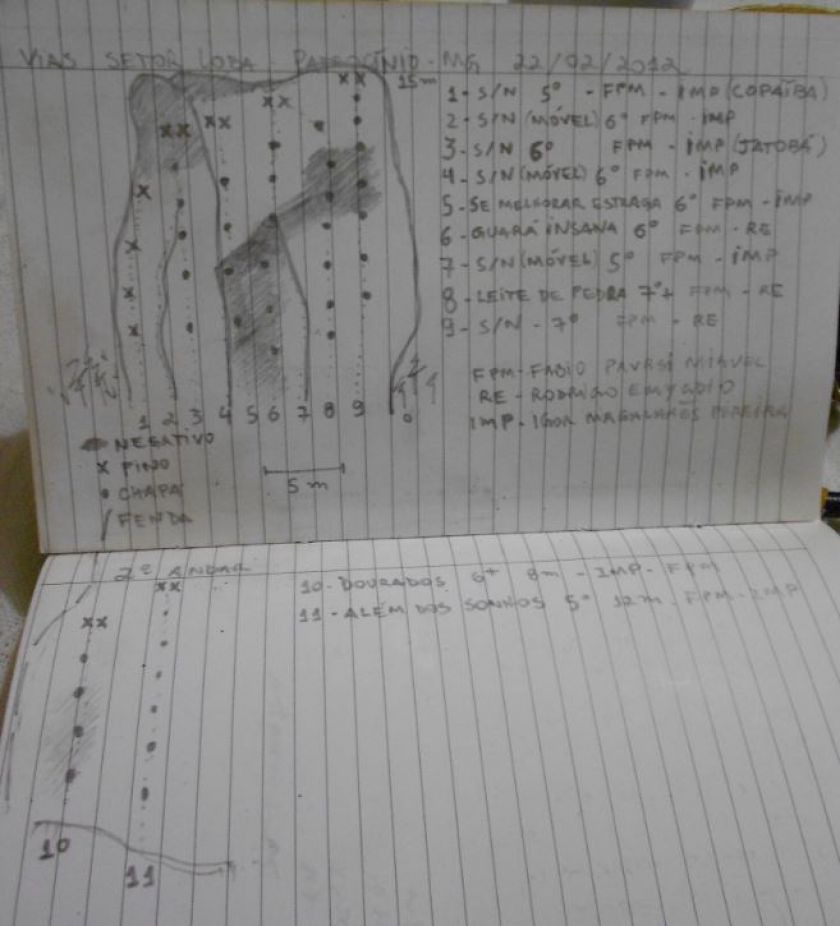 VIAS SETOR LOBA - PATROCÍNIO - MG 22/02/2012
15m
1 - S/N 5º - FPM - IMP (COPAÍBA)
2 - S/N (MÓVEL) 6º FPM - IMP
3 - S/N 6º FPM - IMP (JATOBÁ)
4 - S/N (MÓVEL) 6º FPM - IMP
5 - SE MELHORAR ESTRAGA 6º FPM - IMP
6 - GUARÁ INSANA 6º FPM - RE
7 - S/N (MÓVEL) 5º FPM - IMP
8 - LEITE DE PEDRA 7º+ FPM - RE
9 - S/N - 7º FPM - RE
FPM - FABIO
RE - RODRIGO
IMP - IGOR MAGALHÃES PEREIRA
1 2 3 4 5 6 7 8 9
NEGATIVO
X PINO
• CHAPA
/ FENDA
5 m
2º ANDAR
10 - DOURADOS 6+ 8m - IMP - FPM
11 - ALÉM DOS SONHOS 5º 12m - FPM - IMP
10
11